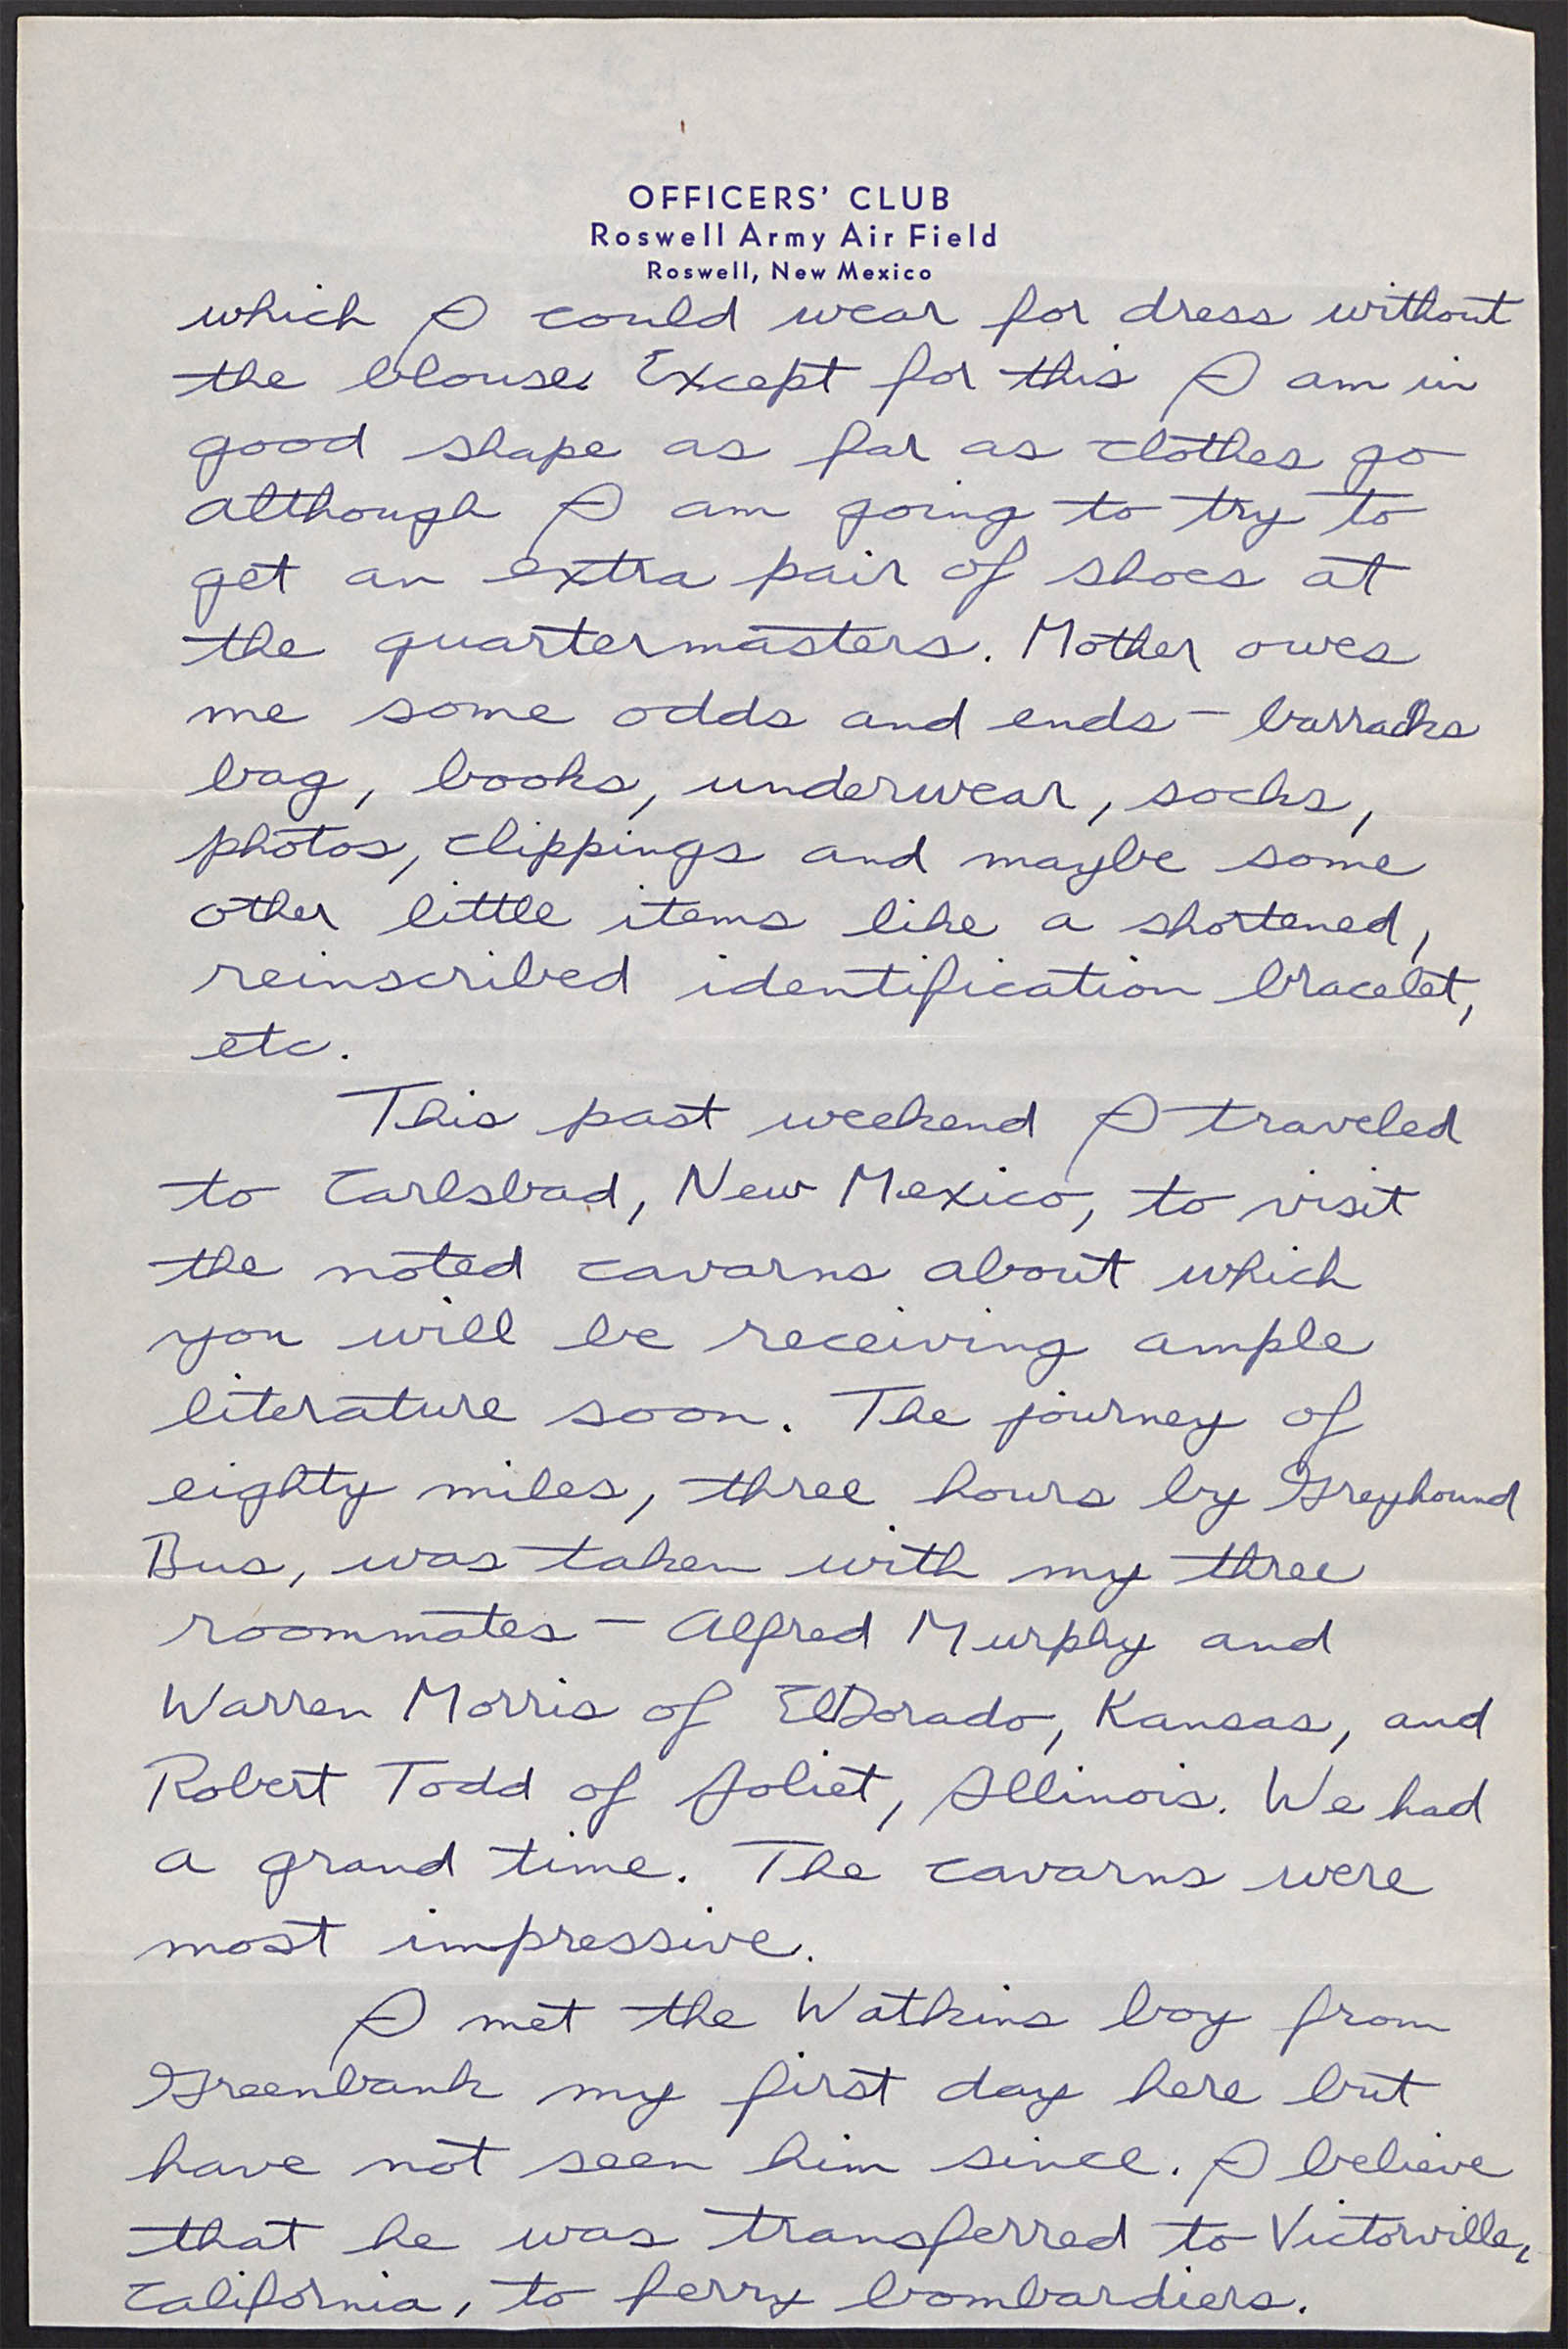 OFFICERS' CLUB
Roswell Army Air Field
Roswell, New Mexico
which I could wear for dress without
the blouse. Except for this I am in
good shape as far as clothes go
although I am going to try to
get an extra pair of shoes at
the quartermasters. Mother owes
me some odds and ends – barracks
bag, books, underwear, socks,
photos, clippings and maybe some
other little items like a shortened,
reinscribed identification bracelet,
etc.
This past weekend I traveled
to Carlsbad, New Mexico, to visit
the noted cavarns about which
you will be receiving ample
literature soon. The journey of
eighty miles, three hours by Greyhound
Bus, was taken with my three
roommates – Alfred Murphy and
Warren Morris of ElDorado, Kansas, and
Robert Todd of Joliet, Illinois. We had
a grand time. The cavarns were
most impressive.
I met the Watkins boy from
Greenbank my first day here but
have not seen him since. I believe
that he was transferred to Victorville,
California, to ferry bombardiers.